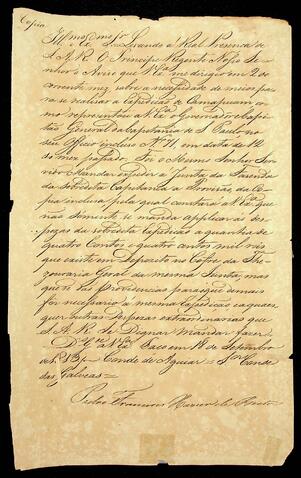 Copia
Ill.mo e Ex.mo Snr. Levando á Real Presença de
S. A. R. O Principe Regente Nosso Se-
nhor o Aviso que V. Ex.a me dirigio em 2 do
corrente mez sobre a necessidade de meios para
se realizar a expedição a Camapuam co-
mo representou a V. Ex.a o Governador e Capi-
tão General da Capitania de S. Paulo no
seu Officio incluso N.o 71, em data de 12
do mez passado. Foi o Mesmo Senhor Ser-
vido Mandar expedir á Junta da Fazenda
da sobredita Capitania a Provizão, da Co-
pia incluza pela qual constará a V. Ex.a que
não somente se manda applicar ás des-
pezas da sobredita expedição a quantia de
quatro Contos e quatro centos mil reis
que existe em Deposito no Cofre da The-
zouraria Geral da mesma Junta, mas
que se dão Providencias para o que de mais
for necessario a mesma expedição e a quaes-
quer outras despezas extraordinarias que
S. A. R. Se Dignar Mandar fazer.
D.s G.e a V. Ex.a Paço em 18 de Setembro
de 1813 = Conde de Aguiar = Snr. Conde
das Galveas =
Pedro Francisco Xavier de